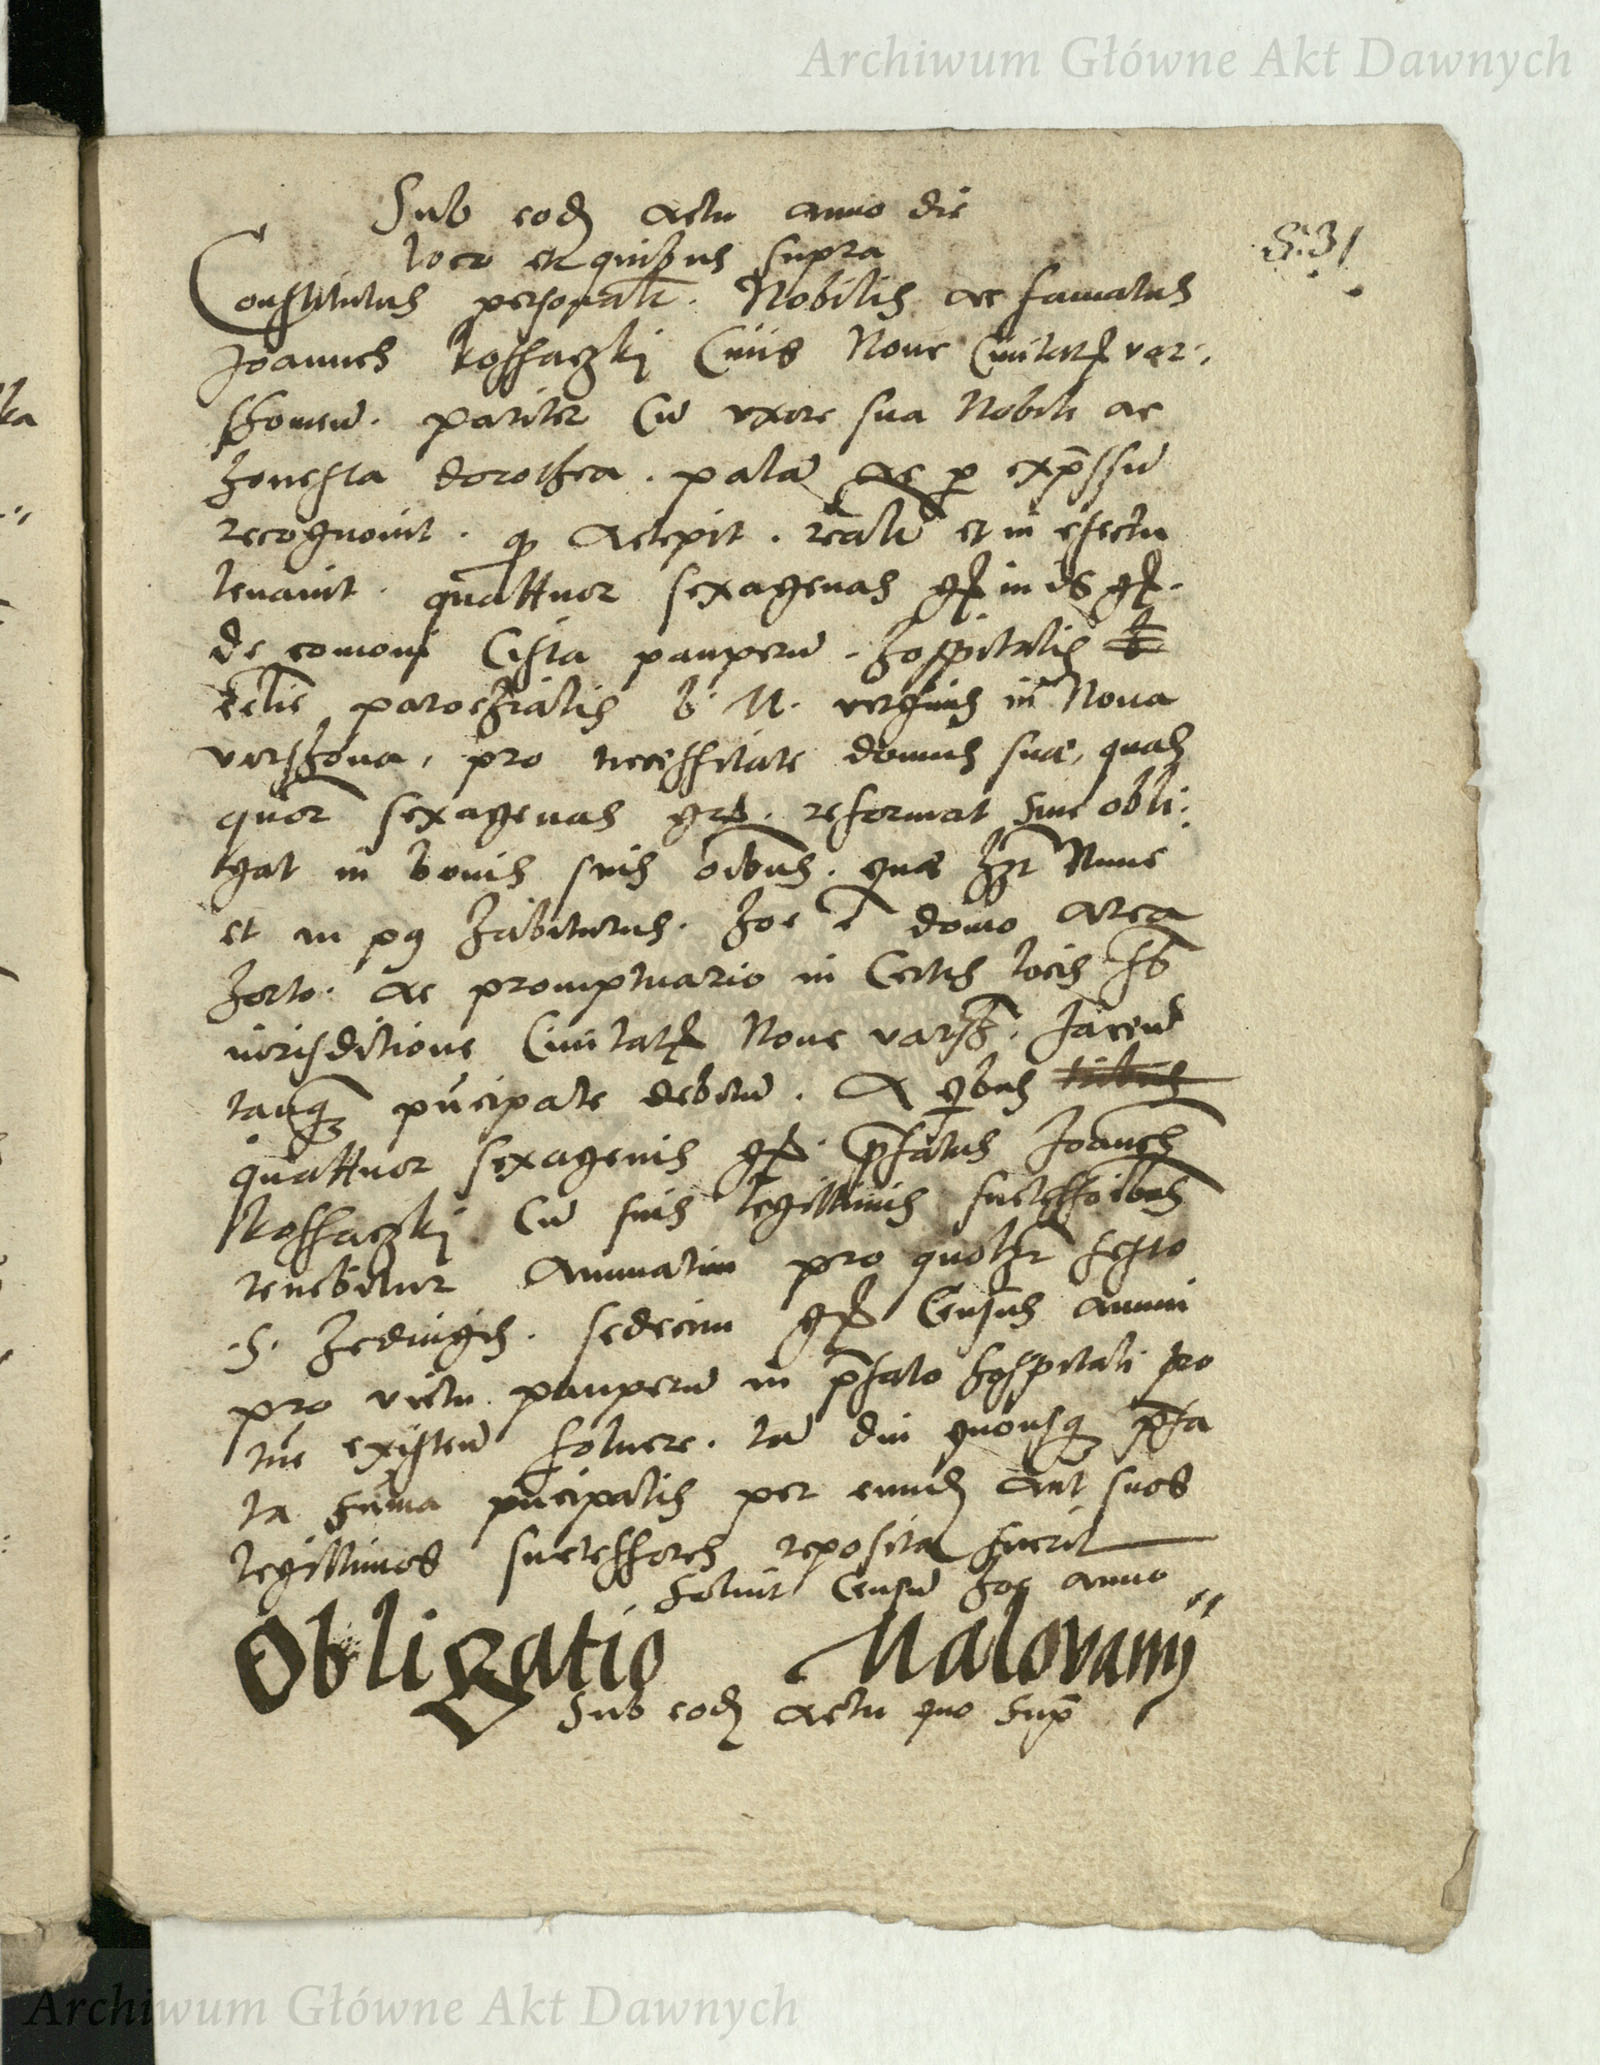 Archiwum Główne Akt Dawnych
Sub eod actu anno die
loco et quibus supra
Constitutus personalr. Nobilis ac famatus
Joannes Kossaczki Ciuis Noue Ciuitat var:
shouien. pariter Cu uxore sua Nobili ac
honesta dorothea. pala ac p expssu
recognouit. q Accepit. realr et in efectu
leuauit. quattuor sexagenas g in g.
de comoni Cista pauperu. hospitalis
eclie parochialis b. M. verginis in Noua
varshoua, pro necessitate domus suae, quas
quor sexagenas gr. reformat siue obli:
gat in bonis suis oibus. quae hr Nunc
et in p habiturus. hoc e domo Area
horto. ac promptuario in Certis locis sb
iurisditione Ciuitat Noue varsh. Jacen
tanq pncipale debitu. A qbus
quattuor sexagenis g. pfatus Joannes
Kossaczki Cu suis legittimis successoibus
tenebitur Annuatim pro quolt festo
.S. Hedvigis. sedecim g Census annui
pro victu pauperu in pfato hospitali pro
tuc existen soluere. ta diu quousq pfa
ta suma pncipalis per eund aut suos
legittimos successores reposita fuerit
soluit Censu hoc anno
Obligatio Malovanij
Sub eod actu quo sup
Archiwum Główne Akt Dawnych